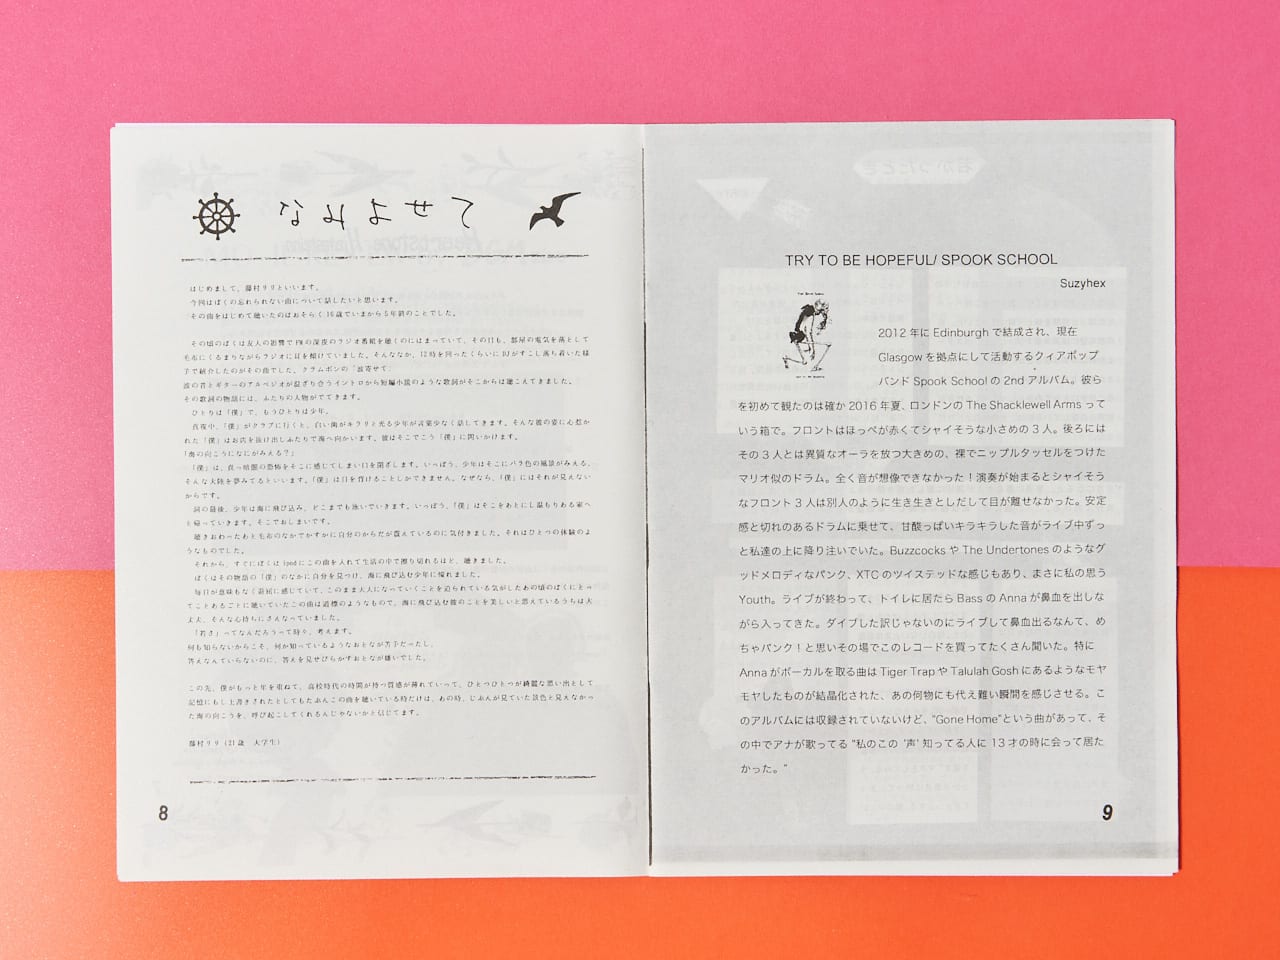 なみよせて
はじめまして、藤村リリといいます。
今回はぼくの忘れられない曲について話したいと思います。
その曲をはじめて聴いたのはおそらく16歳でいまから5年前のことでした。
その頃のぼくは友人の影響でFMの深夜のラジオ番組を聴くのにはまっていて、その日も、部屋の電気を落として
毛布にくるまりながらラジオに耳を傾けていました。そんななか、12時を回ったくらいにDJがすこし落ち着いた様
子で紹介したのがその曲でした。クラムボンの「波寄せて」
波の音とギターのアルペジオが混ざり合うイントロから短編小説のような歌詞がそこからは聴こえてきました。
その歌詞の物語には、ふたりの人物がでてきます。
ひとりは「僕」で、もうひとりは少年。
真夜中、「僕」がクラブに行くと、白い歯がキラリと光る少年が言葉少なく話してきます。そんな彼の姿に心惹か
れた「僕」はお店を抜け出しふたりで海へ向かいます。彼はそこでこう「僕」に問いかけます。
「海の向こうになにがみえる？」
「僕」は、真っ暗闇の恐怖をそこに感じてしまい口を閉ざします。いっぽう、少年はそこにバラ色の風景がみえる、
そんな大陸を夢みてるといいます。「僕」は目を背けることしかできません。なぜなら、「僕」にはそれが見えない
からです。
詞の最後、少年は海に飛び込み、どこまでも泳いでいきます。いっぽう、「僕」はそこをあとにし温もりある家へ
と帰っていきます。そこでおしまいです。
聴きおわったあと毛布のなかでかすかに自分のからだが震えているのに気付きました。それはひとつの体験のよ
うなものでした。
それから、すぐにぼくはipodにこの曲を入れて生活の中で擦り切れるほど、聴きました。
ぼくはその物語の「僕」のなかに自分を見つけ、海に飛び込む少年に憧れました。
毎日が意味もなく退屈に感じていて、このまま大人になっていくことを迫られている気がしたあの頃のぼくにとっ
てことあるごとに聴いていたこの曲は道標のようなもので、海に飛び込む彼のことを美しいと思えているうちは大
丈夫、そんな心持ちにさえなっていました。
「若さ」ってなんだろうって時々、考えます。
何も知らないからこそ、何か知っているようなおとなが苦手だったし、
答えなんていらないのに、答えを見せびらかすおとなが嫌いでした。
この先、僕がもっと年を重ねて、高校時代の時間が持つ質感が薄れていって、ひとつひとつが綺麗な思い出として
記憶にもし上書きされたとしてもたぶんこの曲を聴いている時だけは、あの時、じぶんが見ていた景色と見えなかっ
た海の向こうを、呼び起こしてくれるんじゃないかと信じてます。
藤村リリ（21歳　大学生）
8
TRY TO BE HOPEFUL/ SPOOK SCHOOL
Suzyhex
2012年にEdinburghで結成され、現在
Glasgowを拠点にして活動するクィアポップ
バンドSpook Schoolの2ndアルバム。彼ら
を初めて観たのは確か2016年夏、ロンドンのThe Shacklewell Armsって
いう箱で。フロントはほっぺが赤くてシャイそうな小さめの3人。後ろには
その3人とは異質なオーラを放つ大きめの、裸でニップルタッセルをつけた
マリオ似のドラム。全く音が想像できなかった！演奏が始まるとシャイそう
なフロント3人は別人のように生き生きとしだして目が離せなかった。安定
感と切れのあるドラムに乗せて、甘酸っぱいキラキラした音がライブ中ずっ
と私達の上に降り注いでいた。BuzzcocksやThe Undertonesのようなグ
ッドメロディなパンク、XTCのツイステッドな感じもあり、まさに私の思う
Youth。ライブが終わって、トイレに居たらBassのAnnaが鼻血を出しな
がら入ってきた。ダイブした訳じゃないのにライブして鼻血出るなんて、め
ちゃパンク！と思いその場でこのレコードを買ってたくさん聞いた。特に
Annaがボーカルを取る曲はTiger TrapやTalulah Goshにあるようなモヤ
モヤしたものが結晶化された、あの何物にも代え難い瞬間を感じさせる。こ
のアルバムには収録されていないけど、"Gone Home"という曲があって、そ
の中でアナが歌ってる "私のこの '声' 知ってる人に13才の時に会って居た
かった。"
9